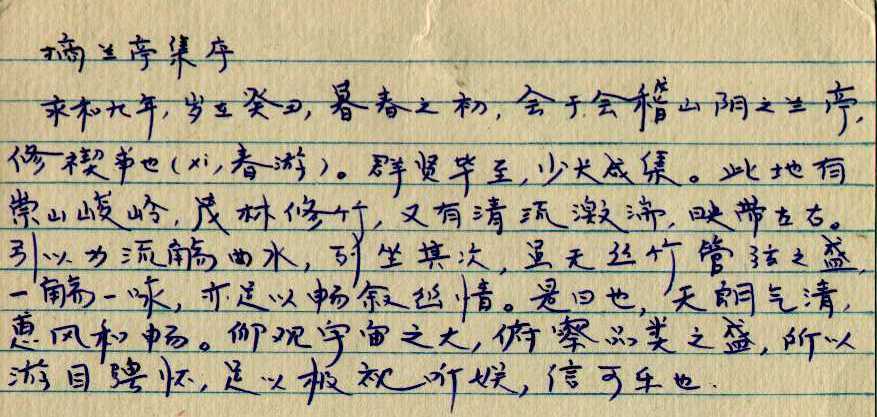 摘兰亭集序
永和九年,岁在癸丑,暮春之初,会于会稽山阴之兰亭,
修禊事也(xi,春游)。群贤毕至,少长咸集。此地有
崇山峻岭,茂林修竹,又有清流激湍,映带左右。
引以为流觞曲水,列坐其次,虽无丝竹管弦之盛,
一觞一咏,亦足以畅叙幽情。是日也,天朗气清,
惠风和畅。仰观宇宙之大,俯察品类之盛,所以
游目骋怀,足以极视听娱,信可乐也.